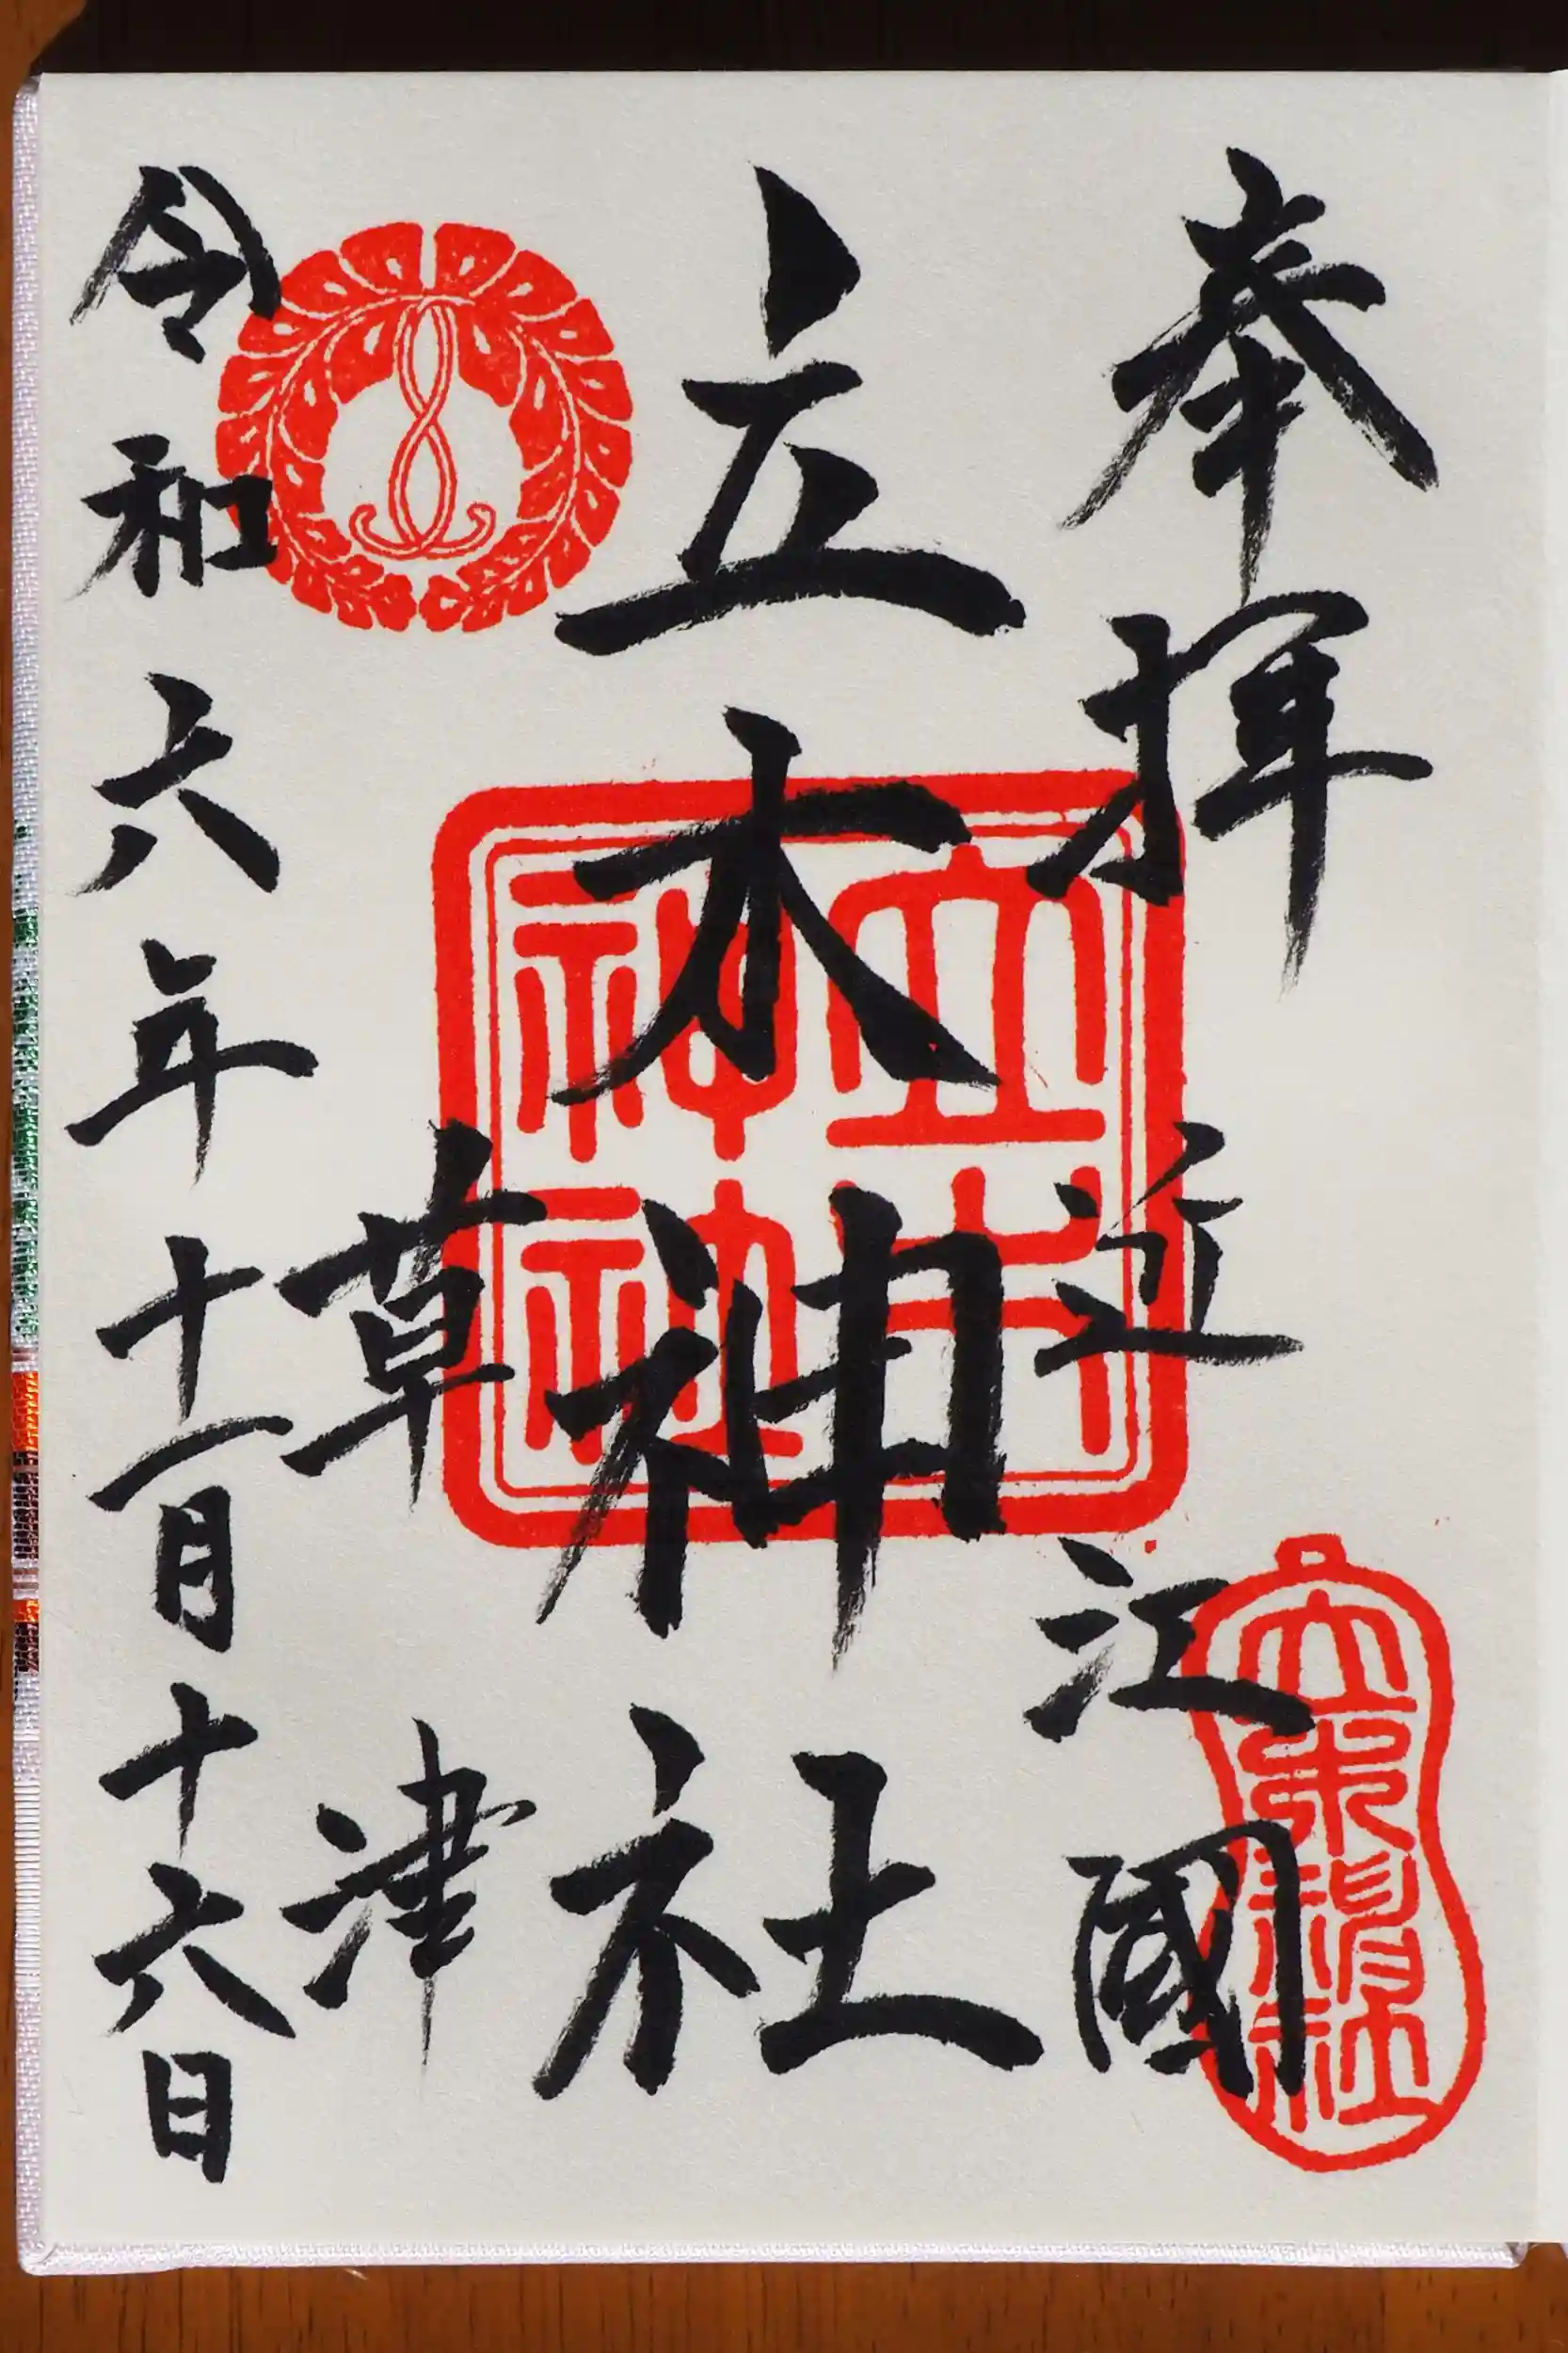 奉拝
近江國
立木神社
草津
令和六年十一月十六日
立木
神社
立木神社